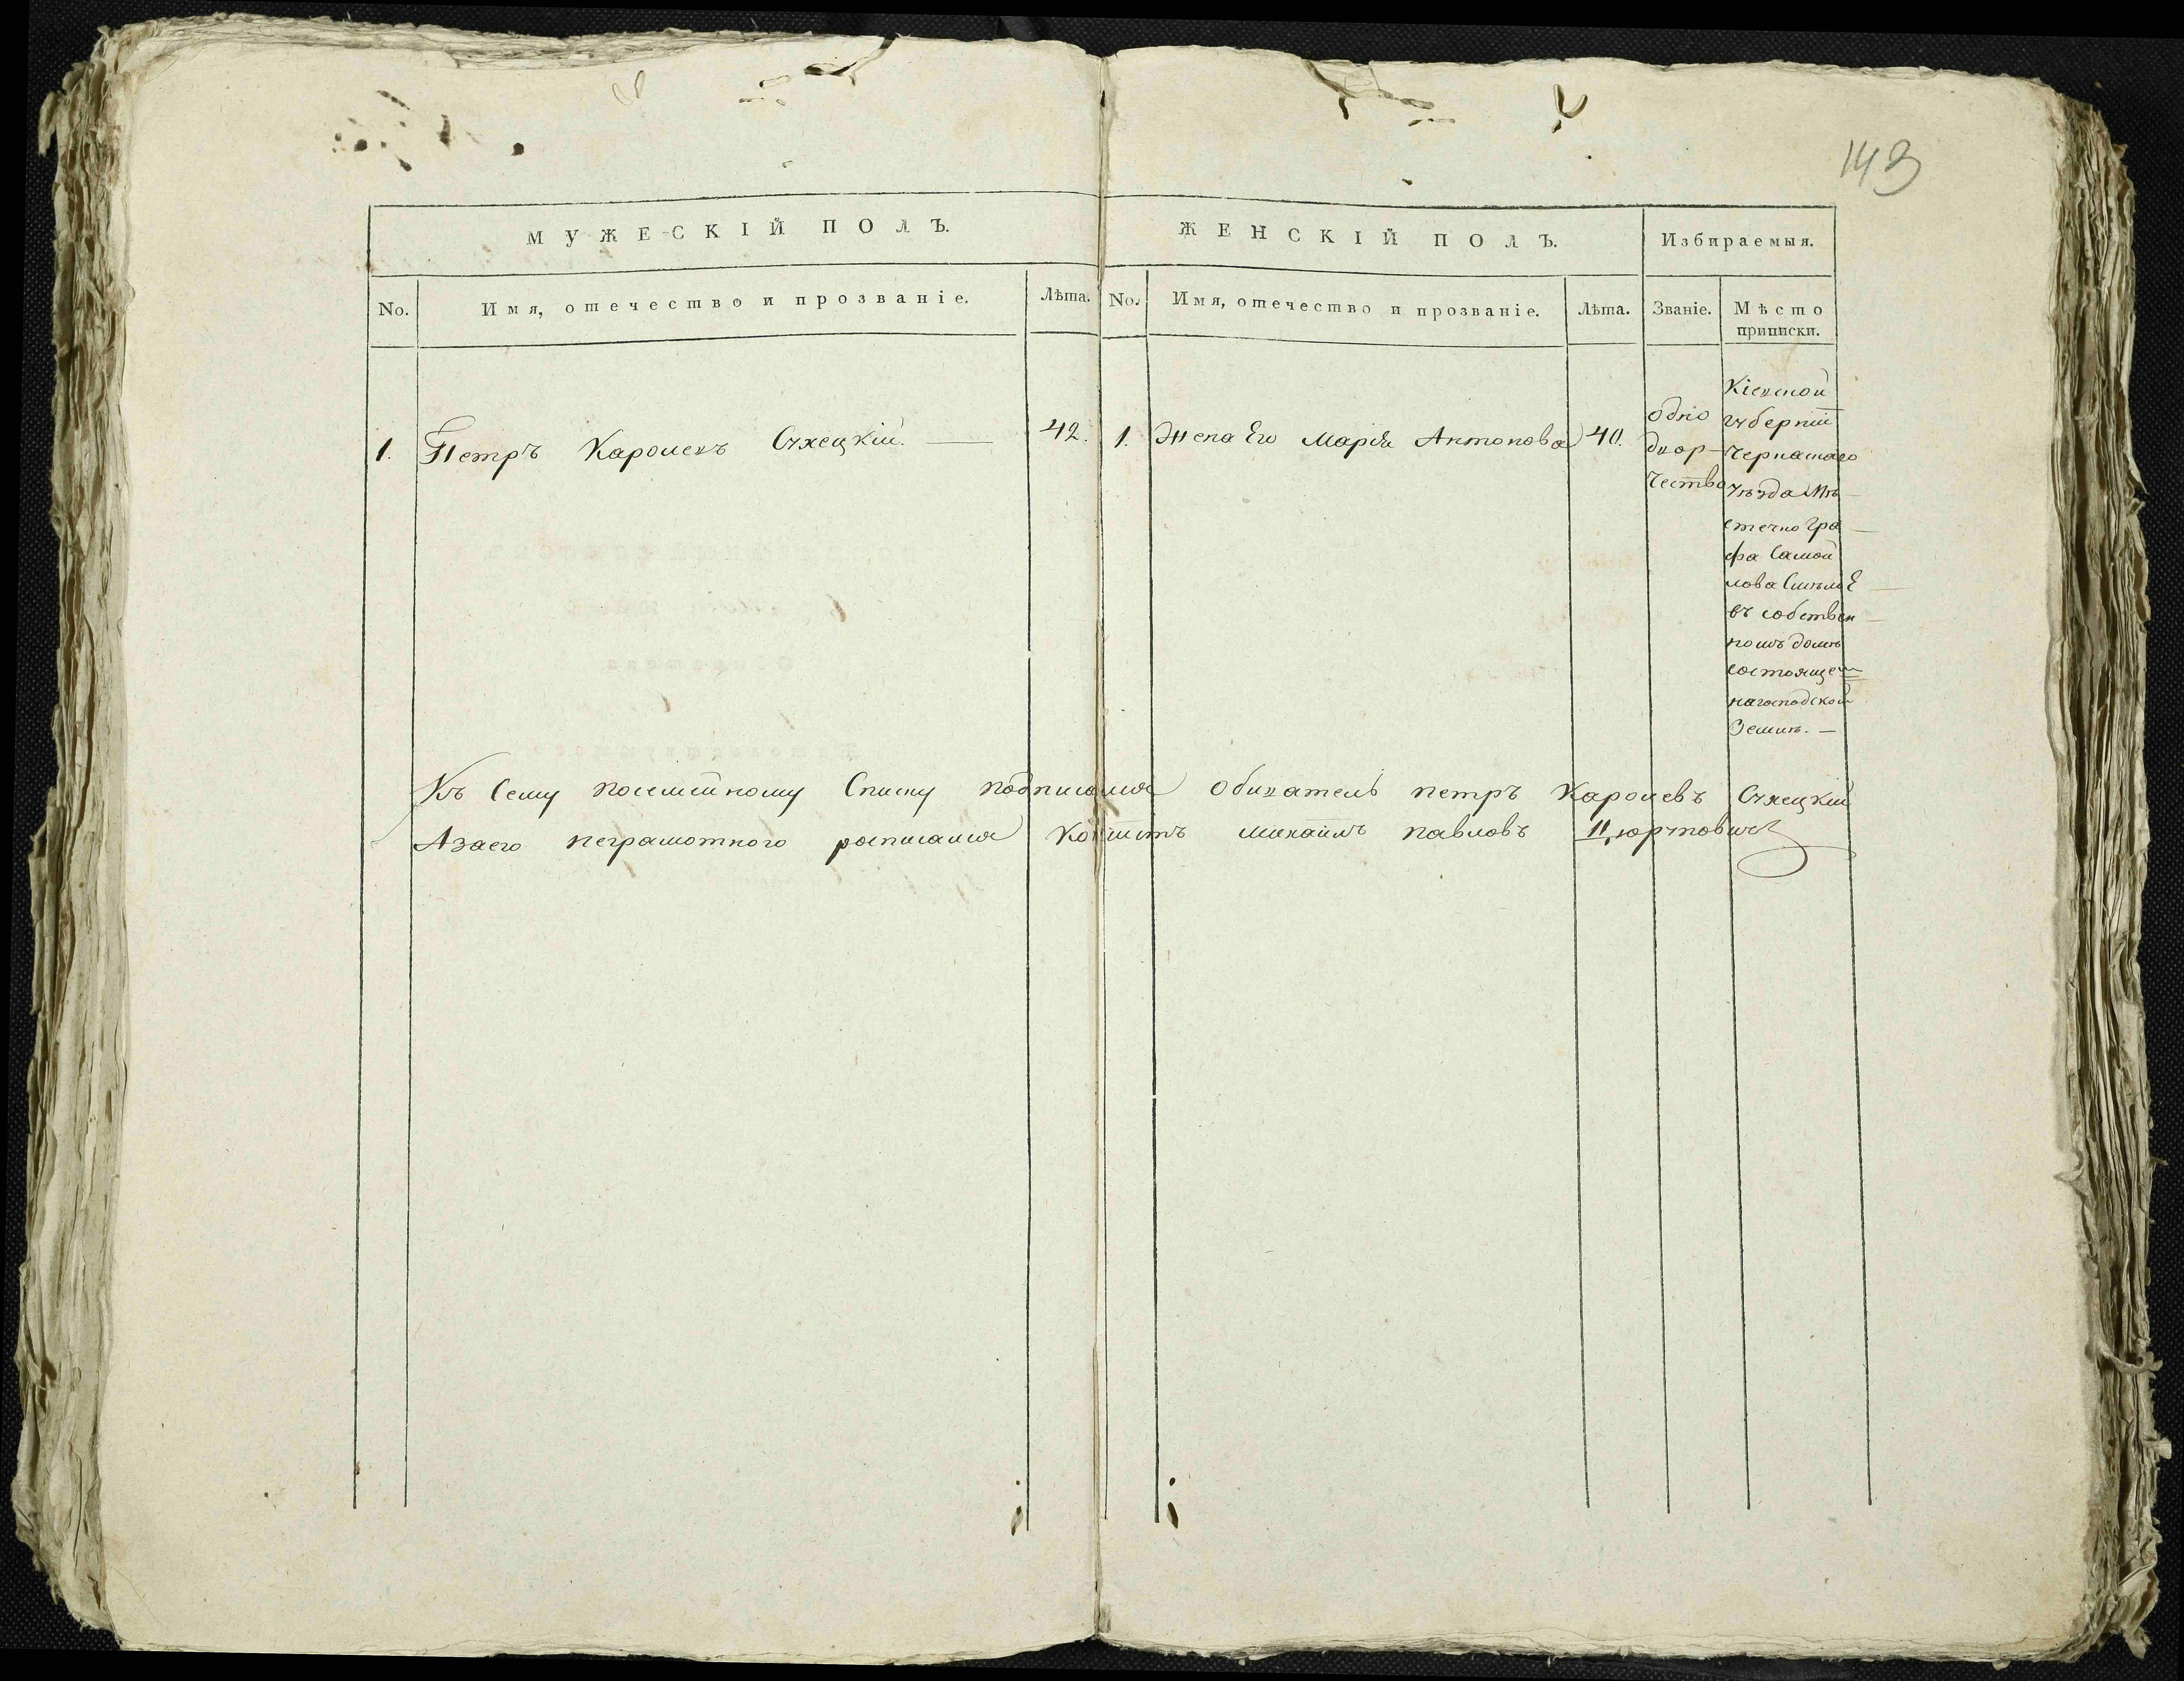 143
МУЖЕСКІЙ ПОЛЪ.
ЖЕНСКІЙ ПОЛЪ.
Избираемыя.
No.
Имя, отечество и прозваніе.
Лѣта.
No.
Имя, отечество и прозваніе.
Лѣта.
Званіе.
Мѣсто
приписки.
1.
Петръ Каролевъ
42.
1.
Жена Его Марія Антонова
40.
одно
двор-
чество
Кіевской
губерніи
Черкаскаго
уѣзда Мѣ-
стечко Гра-
фа Самой
лова Смѣлѣ
въ собствен-
номъ домѣ
состоящем
на господской
Земли. —
Къ Сему посемейному Списку подписался Обыватель петръ Каролевъ
А за его неграмотного росписался Копіистъ михаилъ павловъ